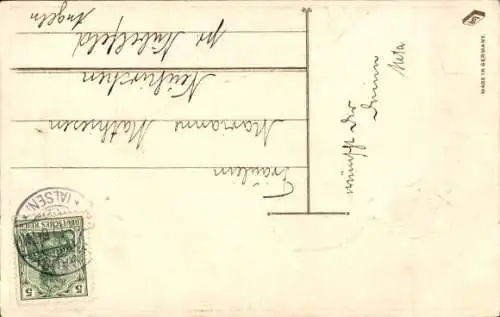 Fräulein
Marianne Mathiesen
Neukirchen
pr Kübelfeld
Angeln
wünscht Dir
Deine
Meta
MADE IN GERMANY.
DEUTSCHES REICH
5 5
(ALSEN)